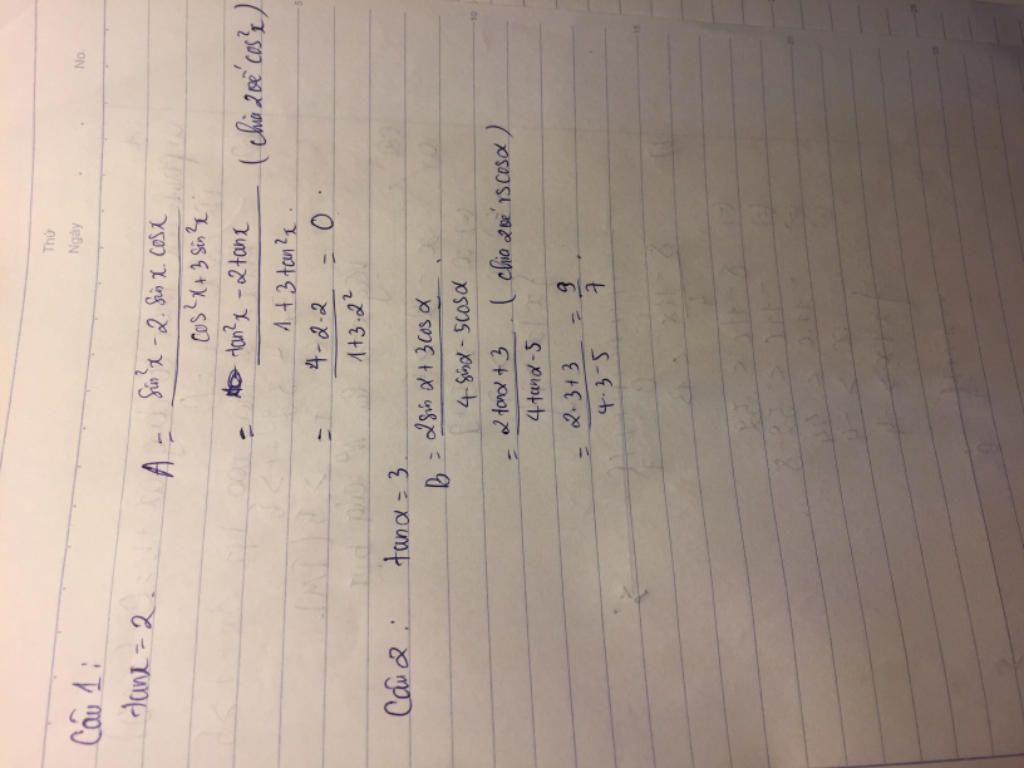 Thứ
Ngày
No.
Câu 1:
tanx = 2.
A = sin²x - 2.sinx cosx / cos²x + 3sin²x
= tan²x - 2tanx / 1 + 3tan²x. (chia 2 vế cos²x)
= 4 - 2.2 / 1 + 3.2² = 0.
Câu 2: tanα = 3
B = 2sinα + 3cosα / 4.sinα - 5cosα.
= 2tanα + 3 / 4tanα - 5 (chia 2 vế cosα)
= 2.3 + 3 / 4.3 - 5 = 9 / 7.
5
10
15
20
25